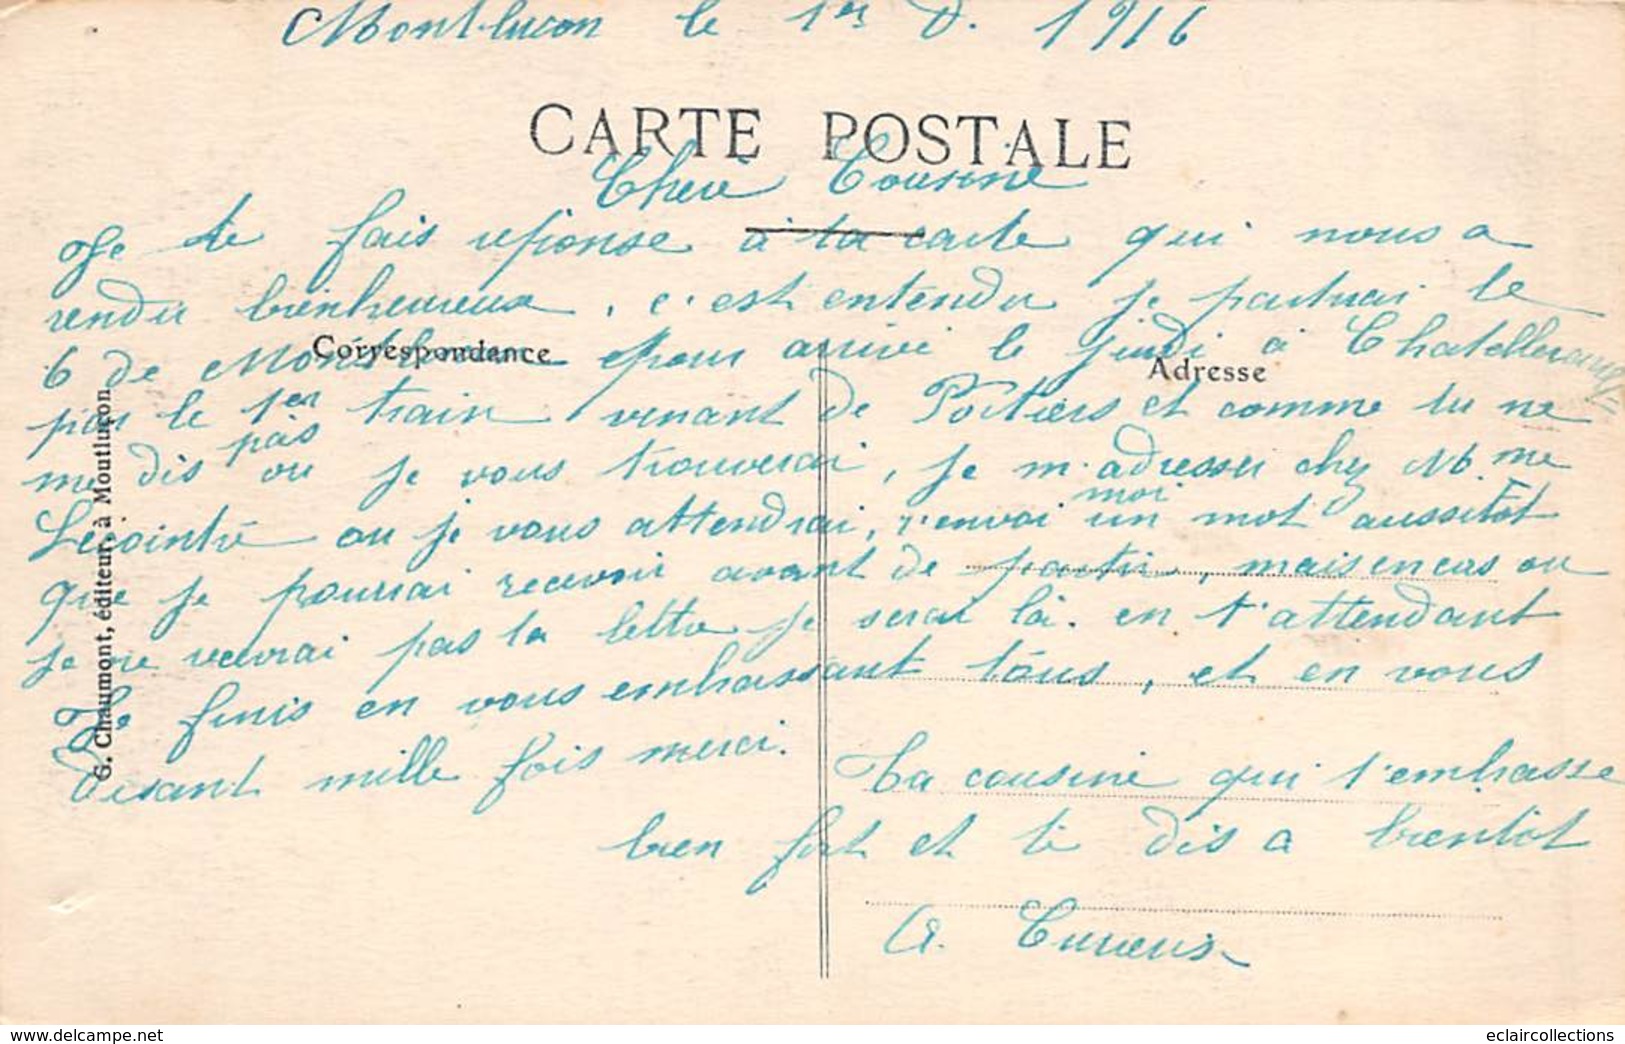 Montluçon le 1er D. 1916
CARTE POSTALE
Chere Cousine
Je te fais réponse à ta carte qui nous a
rendu bienheureux, c'est entendu je partirai le
6 de Montluçon pour arrivé le jeudi à Chatellerault
Correspondance
Adresse
par le 1er train venant de Poitiers et comme tu ne
me dis pas ou je vous trouverai, je m'adresser chez Mme
Lecointre ou je vous attendrai, renvoi moi un mot aussitot
que je pourrai recevoir avant de partir, mais en cas ou
je ne recevrai pas ta lettre je serai là. en t'attendant
Je finis en vous embrassant tous, et en vous
disant mille fois merci.
Ta cousine qui t'embrasse
bien fort et te dis a bientôt
A.
G. Chaumont, éditeur, à Moutluçon
www.delcampe.net
eclaircollections